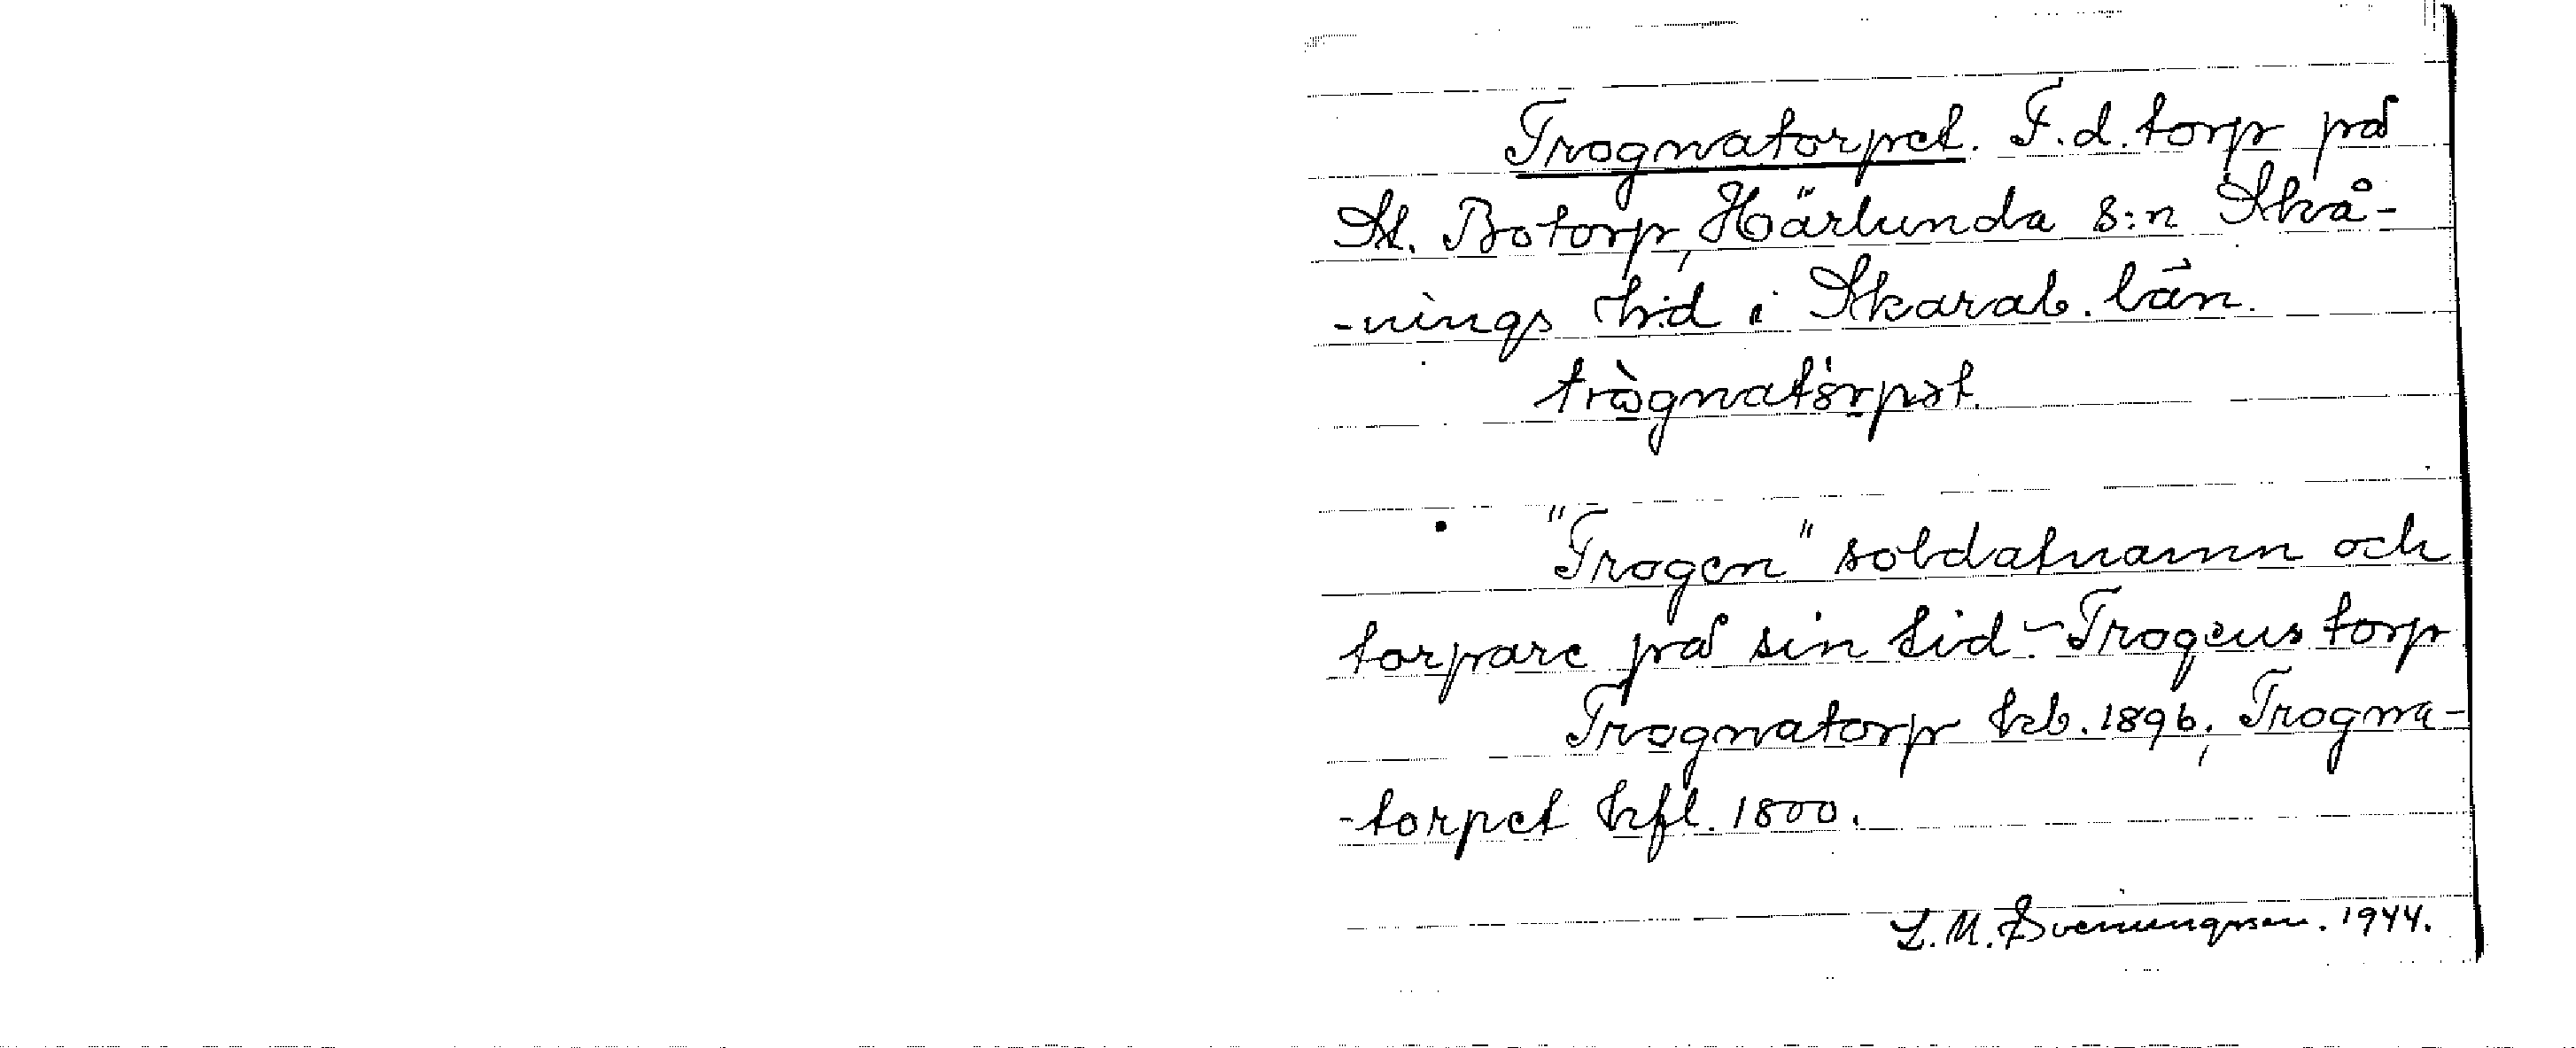 Trognatorpet. F.d. torp på
St. Botorp, Härlunda s:n Skå-
-nings h:d i Skarab. län.
trògnatòrpət.
"Trogen" soldatnamn och
torpare på sin tid - Trogens torp
Trognatorp kb. 1896, Trogna-
-torpet hfl. 1800.
L.M. Svenungsson. 1944.